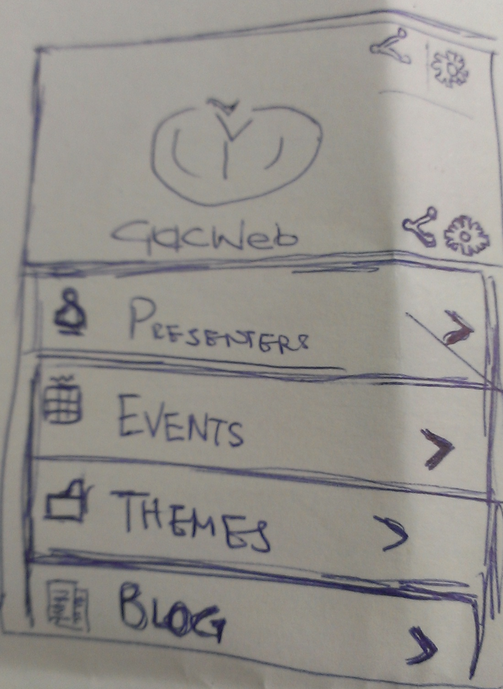 GdcWeb
PRESENTERS
EVENTS
THEMES
BLOG